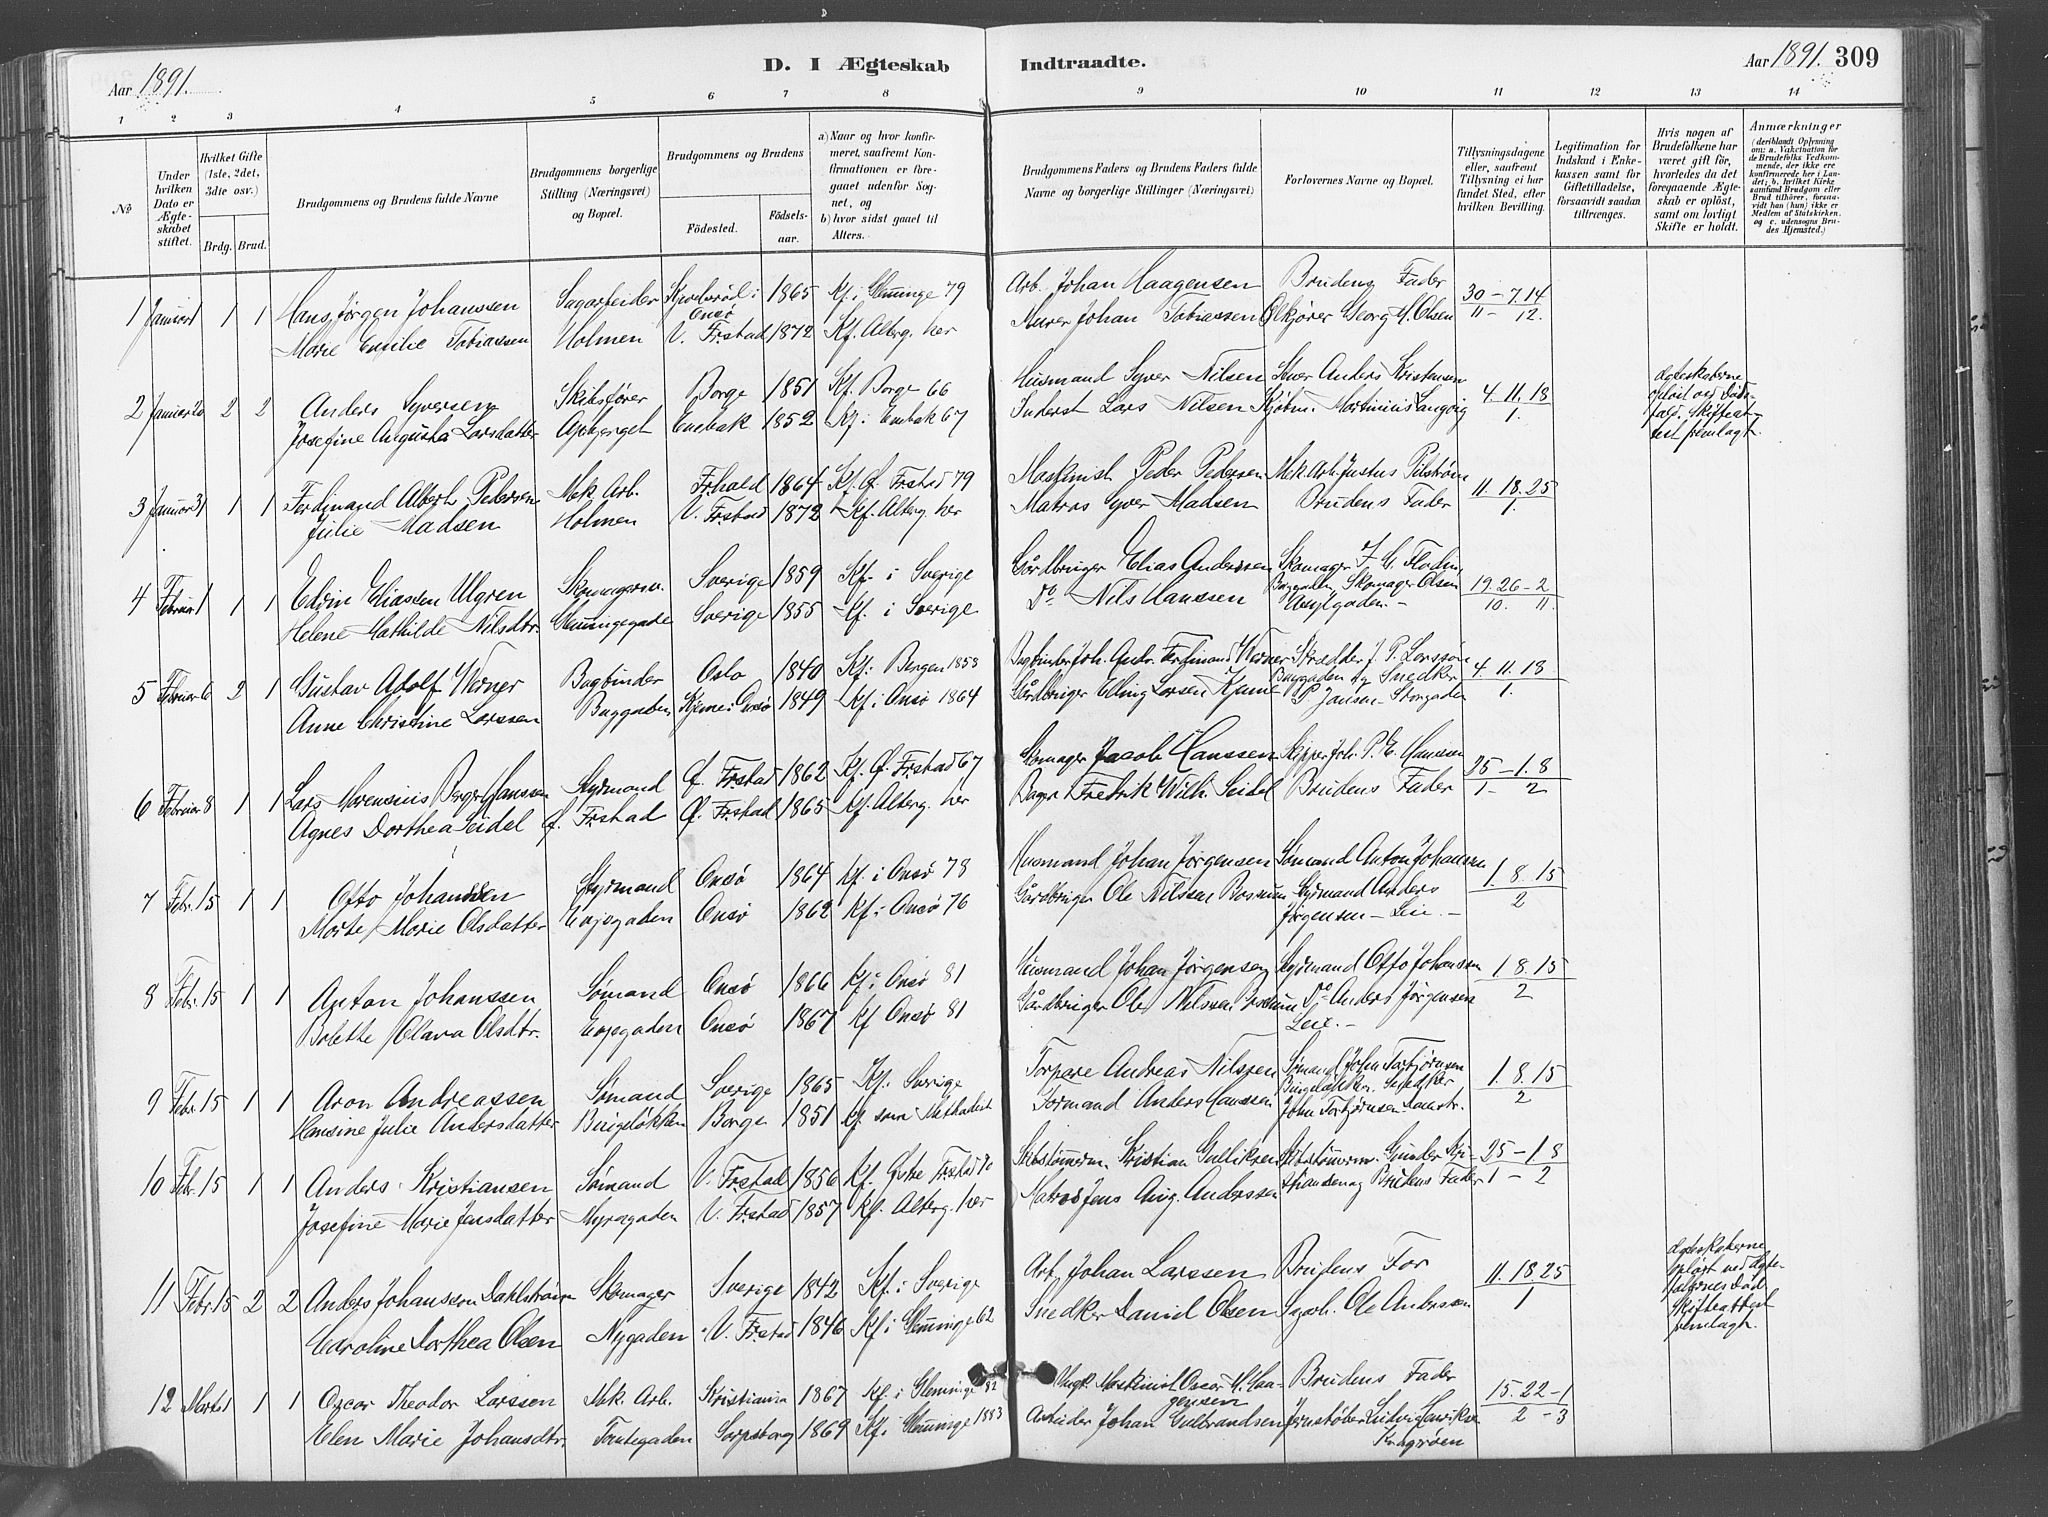 Aar 1891.
D. I Ægteskab
Indtraadte.
Aar 1891. 309
1 2 3 4 5 6 7 8 9 10 11 12 13 14
No
Under hvilken Dato er Ægteskabet stiftet.
Hvilket Gifte (1ste, 2det, 3die osv.)
Brdg. Brud.
Brudgommens og Brudens fulde Navne
Brudgommens borgerlige Stilling (Næringsvei) og Bopæl.
Brudgommens og Brudens
Fødested. Fødselsaar.
a) Naar og hvor konfirmeret, saafremt Konfirmationen er foregaaet udenfor Sognet, og
b) hvor sidst gaaet til Alters.
Brudgommens Faders og Brudens Faders fulde Navne og borgerlige Stillinger (Næringsvei)
Forlovernes Navne og Bopæl.
Tillysningsdagene eller, saafremt Tillysning ei har fundet Sted, efter hvilken Bevilling.
Legitimation for Indskud i Enkekassen samt for Giftetilladelse, forsaavidt saadan tiltrænges.
Hvis nogen af Brudefolkene har været gift før, hvorledes da det foregaaende Ægteskab er opløst, samt om lovligt Skifte er holdt.
Anmærkninger (deriblandt Oplysning om: a. Vakcination for de Brudefolks Vedkommende, der ikke ere konfirmerede her i Landet; b. hvilket Kirkesamfund Brudgom eller Brud tilhører, forsaavidt han (hun) ikke er Medlem af Statskirken, og c. udensogns Brudes Hjemsted.)
1 Januar 1 1 1 Hans Jørgen Johanssen Sagarbeider Kjølberød i Onsø 1865 Kf. i Glemminge 79 Arb. Johan Haagensen Brudens Fader 30 – 7. 14
Marie Emilie Tobiassen Holmen V. Frstad 1872 Kf. Alterg. her Murer Johan Tobiassen Ølkjører Georg M. Olsen 11 – 12.
2 Januar 20 2 2 Anders Syversen Skibsfører Borge 1851 Kf. Borge 66 Husmand Syver Nilsen Anders Kristensen 4. 11. 18
Josefine Augusta Larsdatter Apbjerget Enebak 1852 Kf. i Enebak 67 Inderst Lars Nilsen Kjøbm. Martinius Langvig 1.
Ægteskaberne opløst ved Dødsfald. Skifteattest fremlagt.
3 Januar 31 1 1 Ferdinand Albert Pedersen Mek. Arb. Frhald 1864 Kf. Ø. Frstad 79 Maskinist Peder Pedersen Mek. Arb. Justus Pilstrøm 11. 18. 25
Julie Madsen Holmen V. Frstad 1872 Kf. Alterg. her Matros Syver Madsen Brudens Fader 1.
4 Februar 1 1 1 Edvin Eliassen Ulgren Skomagersv. Sverige 1859 Kf. i Sverige Gårdbruger Elias Anderssen Skomager F. C. Flodin, 19. 26 – 2
Helene Mathilde Nilsdtr. Glemmegade Sverige 1855 Kf. i Sverige Do Nils Hanssen Baggaden, Skomager Olsen Asylgaden. – 10. 11.
5 Februar 6 2 1 Gustav Adolf Werner Bogbinder Oslo 1840 Kf. i Bergen 1858 Bogbinder Joh. Andr. Ferdinand Werner Skrædder J. P. Larssøn 4. 11. 18
Anne Christine Larssen Baggaden Kjerne i Onsø 1849 Kf. i Onsø 1864 Gårdbruger Elling Larsen Kjerne Baggaden og Snedker P. Jansen – Storgaden 1.
6 Februar 8 1 1 Lars Morensius Berger Hanssen Styrmand Ø. Frstad 1862 Kf. Ø. Frstad 67 Skomager Jacob Hanssen Skipper Joh. P. E. Hanssen 25 – 1. 8
Agnes Dorthea Seidel Ø. Frstad Ø. Frstad 1865 Kf. Alterg. her Bager Fredrik Wilh. Seidel Brudens Fader 1 – 2
7 Febr. 15 1 1 Otto Johanssen Styrmand Onsø 1864 Kf. i Onsø 78 Husmand Johan Jørgensen Sømand Anton Johansen 1. 8. 15
Marte Marie Olsdatter Enjegaden Onsø 1862 Kf. i Onsø 76 Gårdbruger Ole Nilssen Rossum Styrmand Anders Jørgensen – Leie. – 2
8 Febr. 15 1 1 Anton Johanssen Sømand Onsø 1866 Kf. i Onsø 81 Husmand Johan Jørgensen Styrmand Otto Johanssen 1 8. 15
Bolette Clara Olsdtr. Enjegaden Onsø 1867 Kf. Onsø 81 Gårdbruger Ole Nilssen Rossum Do Anders Jørgensen Leie. – 2
9 Febr. 15 1 1 Aron Andreassen Sømand Sverige 1865 Kf. i Sverige Torpare Andreas Nilssen Sømand John Torbjørnsen 1. 8. 15
Hansine Julie Andersdatter Bingeløkken Borge 1851 Kf. som Methodist Formand Anders Hanssen Bingeløkken. Snedker John Torbjørnsen Damstr. 2
10 Febr. 15 1 1 Anders Kristiansen Sømand V. Frstad 1856 Kf. Østre Frstad 70 Skibstømerm. Kristian Gulliksen Skibstømerm. Gunder Kri- 25 – 1 8
Josefine Marie Jensdatter Myragaden V. Frstad 1857 Kf. Alterg. her Matros Jens Aug. Anderssen stiansen og Brudens Fader 1 – 2
11 Febr. 15 2 2 Anders Johansson Dahlstrøm Skomager Sverige 1842 Kf. i Sverige Arb. Johan Larssen Brudens Far 11. 18. 25
Caroline Dorthea Olsen Nygaden V. Frstad 1846 Kf. i Glemminge 62 Snedker Daniel Olsen Sagarb. Ole Andressen 1
Ægteskaberne opløst ved Ægtefælernes Død. Skifteattest fremlagt.
12 Marts 1 1 1 Oscar Theodor Larssen Mek. Arb. Kristiania 1867 Kf. i Glemminge 82 Ungk. Maskinist Oscar M. Haagensen Brudens Fader 15. 22 – 1
Elen Marie Johansdtr. Tomtegaden Sarpsborg 1869 Kf. i Glemminge 1883 Arbeider Johan Gulbrandsen Jernstøber Ludvig Henriksen Kragerøen 2 – 3